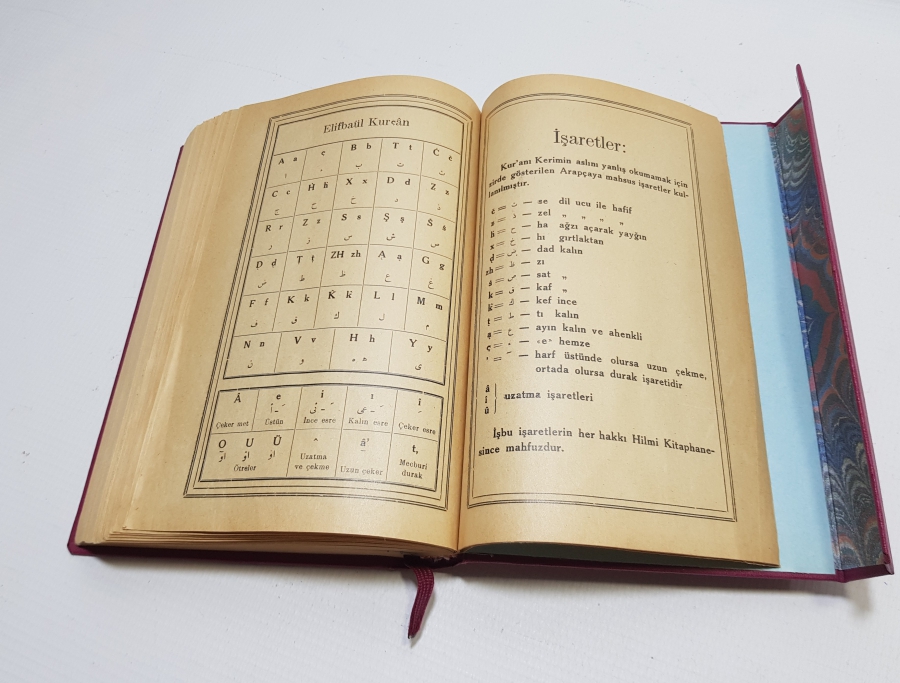 Elifbaül Kur'ân
A a
ا
ء
B b
ب
T t
ت
ث
C c
ج
Ḥ ḥ
ح
X x
خ
D d
د
Z z
ذ
R r
ر
Z z
ز
S s
س
Ş ş
ش
ص
Ḍ ḍ
ض
Ṭ ṭ
ط
ZH zh
ظ
Ạ ạ
ع
G g
غ
F f
ف
K k
ق
ك
L l
ل
M m
م
N n
ن
V v
و
H h
Y y
ى
Â e i ı
Çeker met Üstün İnce esre Kalın esre Çeker esre
O U Ü
Ötreler
Uzatma
ve çekme
Uzun çeker
Mecburî
durak
İşaretler:
Kur'anı Kerimin aslını yanlış okumamak için
zirde gösterilen Arapçaya mahsus işaretler kul-
lanılmıştır.
= ث — se dil ucu ile hafif
= ذ — zel „ „ „ „
ḥ = ح — ha ağzı açarak yayğın
x = خ — hı gırtlaktan
ḍ = ض — dad kalın
zh = ظ — zı
= ص — sat „
k = ق — kaf „
= ك — kef ince
ṭ = ط — tı kalın
ạ = ع — ayın kalın ve ahenkli
= ء — «e» hemze
— harf üstünde olursa uzun çekme,
ortada olursa durak işaretidir
â
î
û
uzatma işaretleri
İşbu işaretlerin her hakkı Hilmi Kitaphane-
since mahfuzdur.